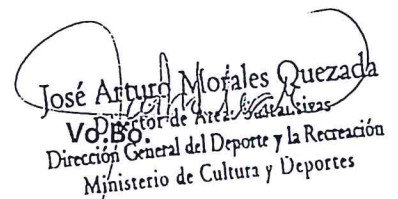 José Arturo Morales Quezada
Director de Áreas Sustantivas
Vo.Bo.
Dirección General del Deporte y la Recreación
Ministerio de Cultura y Deportes